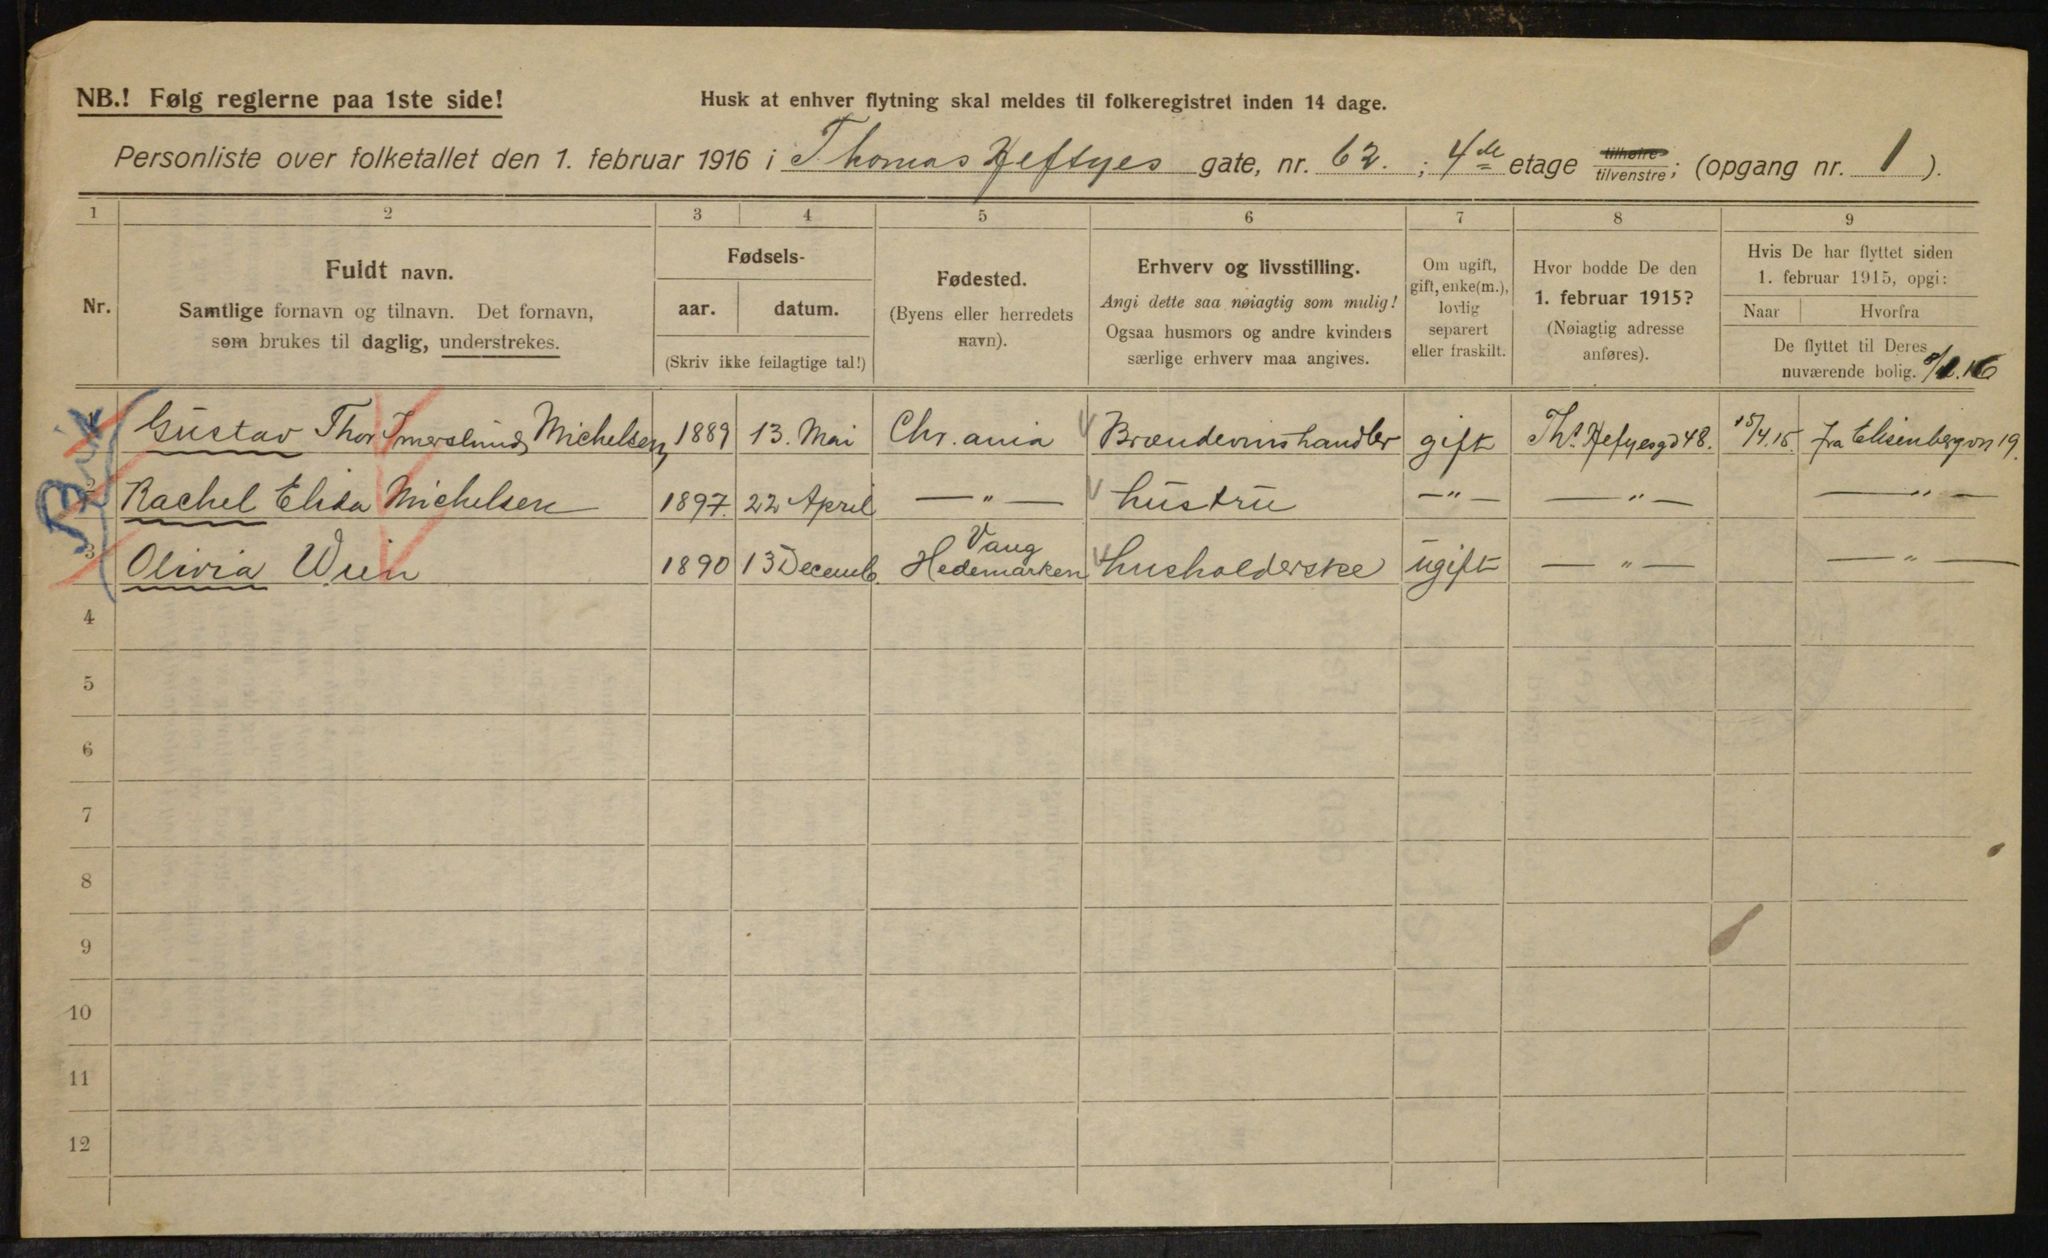 NB.! Følg reglerne paa 1ste side!
Husk at enhver flytning skal meldes til folkeregistret inden 14 dage.
Personliste over folketallet den 1. februar 1916 i Thomas Heftyes gate, nr. 62. ; 4de etage tilhøire tilvenstre; (opgang nr. 1 ).
1 2 3 4 5 6 7 8 9
Nr.
Fuldt navn.
Samtlige fornavn og tilnavn. Det fornavn,
som brukes til daglig, understrekes.
Fødsels-
aar. datum.
(Skriv ikke feilagtige tal!)
Fødested.
(Byens eller herredets
navn).
Erhverv og livsstilling.
Angi dette saa nøiagtig som mulig!
Ogsaa husmors og andre kvinders
særlige erhverv maa angives.
Om ugift,
gift, enke(m.),
lovlig
separert
eller fraskilt.
Hvor bodde De den
1. februar 1915?
(Nøiagtig adresse
anføres).
Hvis De har flyttet siden
1. februar 1915, opgi:
Naar Hvorfra
De flyttet til Deres
nuværende bolig.
1 Gustav Thor Imerslund Michelsen 1889 13. Mai Chr.ania Brændevinshandler gift Ths. Hefyesgd 48. 15/4.15. fra Elisenbergvn 19.
2 Rachel Elida Michelsen 1897. 22 April — " — hustru — " — — " — — " —
3 Olivia Wein 1890 13 Decemb. Vang Hedemarken husholderske ugift — " — — " —
4
5
6
7
8
9
10
11
12